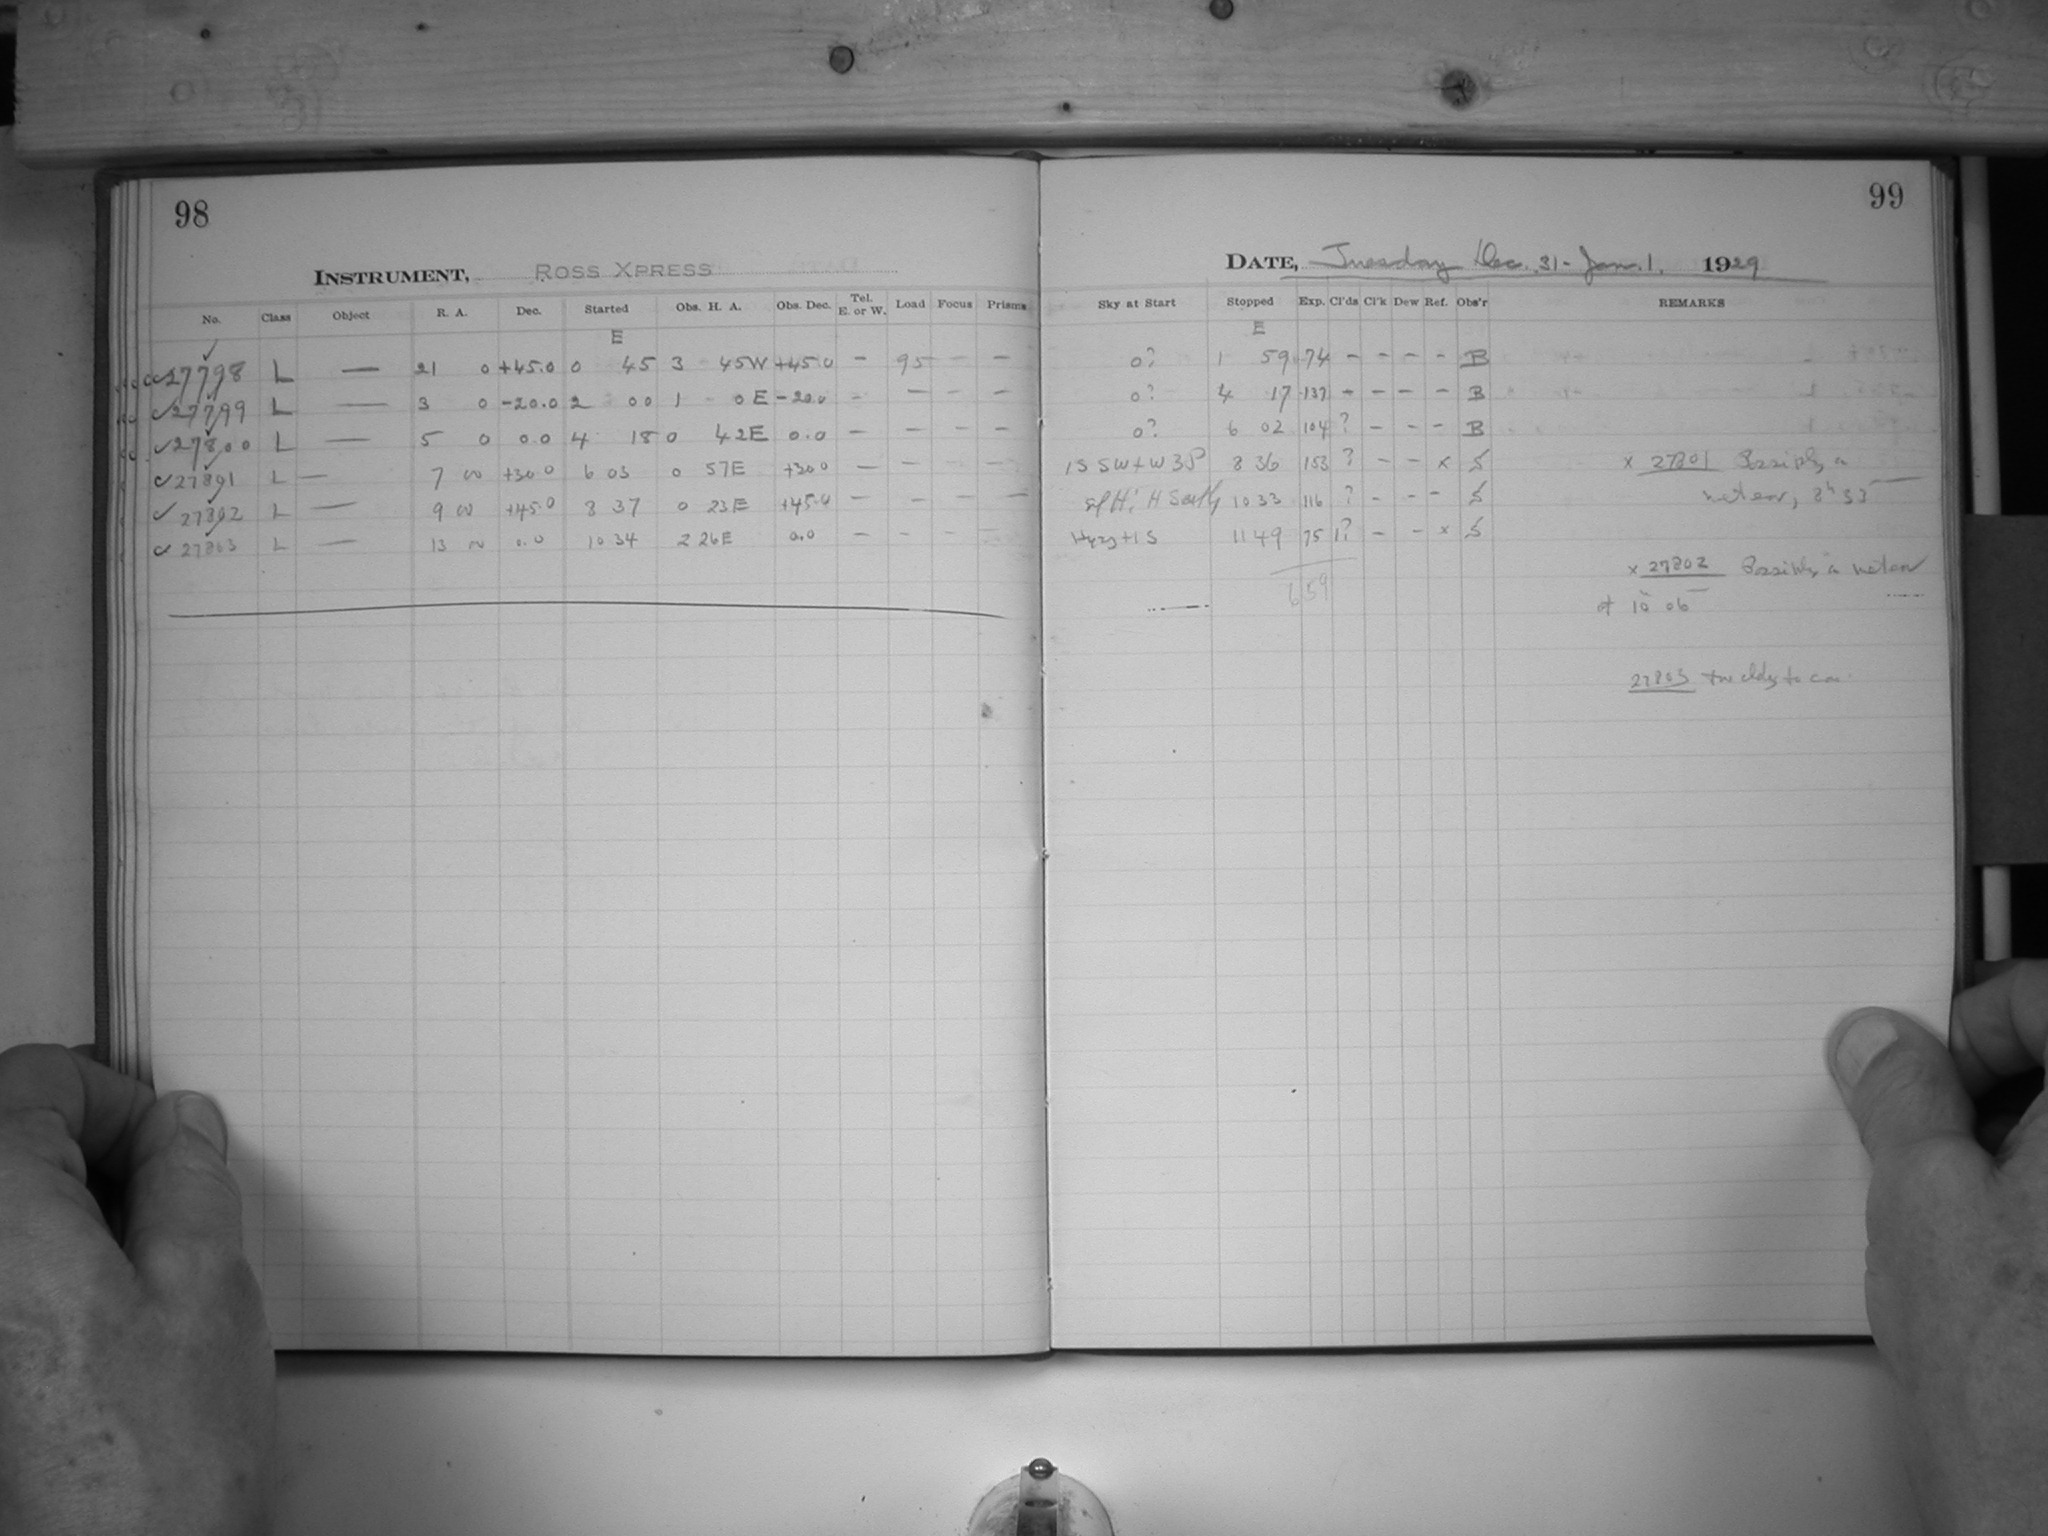 98
99
INSTRUMENT, ROSS XPRESS
DATE, Tuesday Dec. 31 - Jan. 1. 1929
No. Class Object R. A. Dec. Started Obs. H. A. Obs. Dec. Tel. E. or W. Load Focus Prisms Sky at Start Stopped Exp. Cl'ds Cl'k Dew Ref. Obs'r REMARKS
E E
27798 L — 21 0 +45.0 0 45 3 45W +45.0 — 95 — — 0? 1 59 74 — — — — B
27799 L — 3 0 -20.0 2 00 1 0 E -20.0 — — — — 0? 4 17 137 — — — — B
27800 L — 5 0 0.0 4 18 0 42E 0.0 — — — — 0? 6 02 104 ? — — — B
27801 L — 7 00 +30.0 6 03 0 57E +30.0 — — — — 1S SW+W 3P 8 36 153 ? — — x S x 27801 Possibly a
meteor, 8h 33
27802 L — 9 00 +45.0 8 37 0 23E +45.0 — — — — South 10 33 116 ? — — — S
27803 L — 13 00 0.0 10 34 2 26E 0.0 — — — — Hazy+1S 11 49 75 1? — — x S
x 27802 Possibly a meteor
at 10 06
659
27803 too cldy to